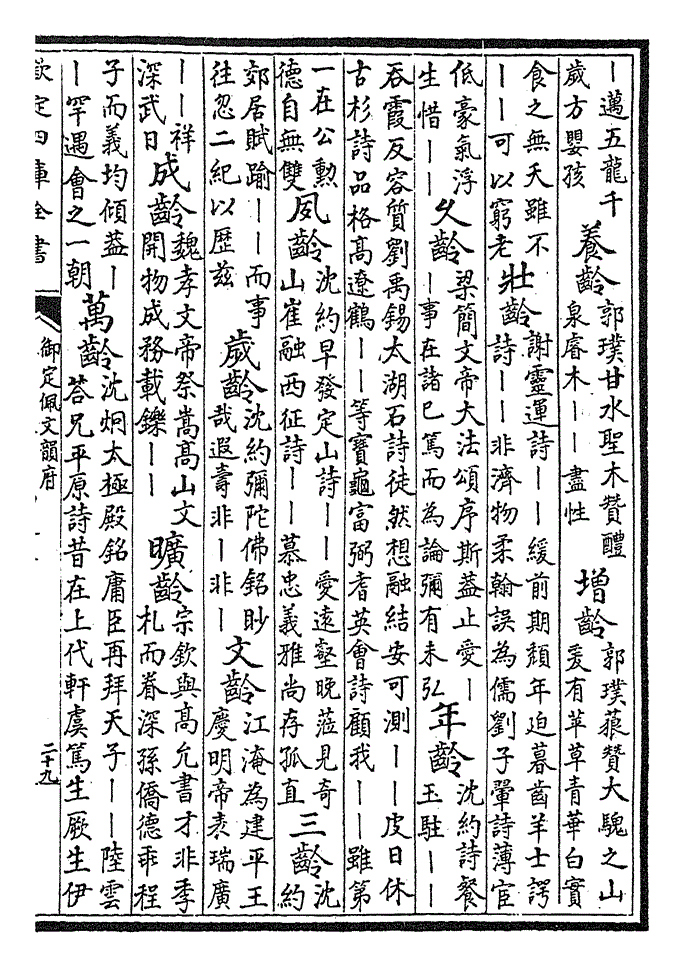 ｜邁五龍千歲方嬰孩養齡郭璞甘水聖木贊醴泉睿木｜｜盡性增齡郭璞䔉贊大騩之山爰有苹草青華白實
食之無夭雖不｜｜可以窮老壯齡謝靈運詩｜｜緩前期頽年迫暮齒羊士諤詩｜｜非濟物柔翰誤為儒劉子翬詩薄宦
低豪氣浮生惜｜｜久齡梁簡文帝大法頌序斯蓋止愛｜｜事在諸已篤而為論彌有未弘年齡沈約詩餐玉駐｜｜
吞霞反容質劉禹錫太湖石詩徒然想融結安可測｜｜皮日休古杉詩品格高遼鶴｜｜等寶龜富弼耆英會詩顧我｜｜雖第
一在公勲德自無雙夙齡沈約早發定山詩｜｜愛遠壑晚蒞見奇山崔融西征詩｜｜慕忠義雅尚存孤直三齡沈約
郊居賦踰｜｜而事往忽二紀以歴茲歲齡沈約彌陀佛銘眇哉遐壽非｜非｜文齡江淹為建平王慶明帝表瑞廣
｜｜祥深武日成齡魏孝文帝祭嵩高山文開物成務載鑠｜｜曠齡宗欽與高允書才非季札而眷深孫僑德乖程
子而義均傾蓋｜｜罕遇會之一朝萬齡沈炯太極殿銘庸臣再拜天子｜｜陸雲答兄平原詩昔在上代軒虞篤生厥生伊
欽定四庫全書
御定佩文韻府
二十九